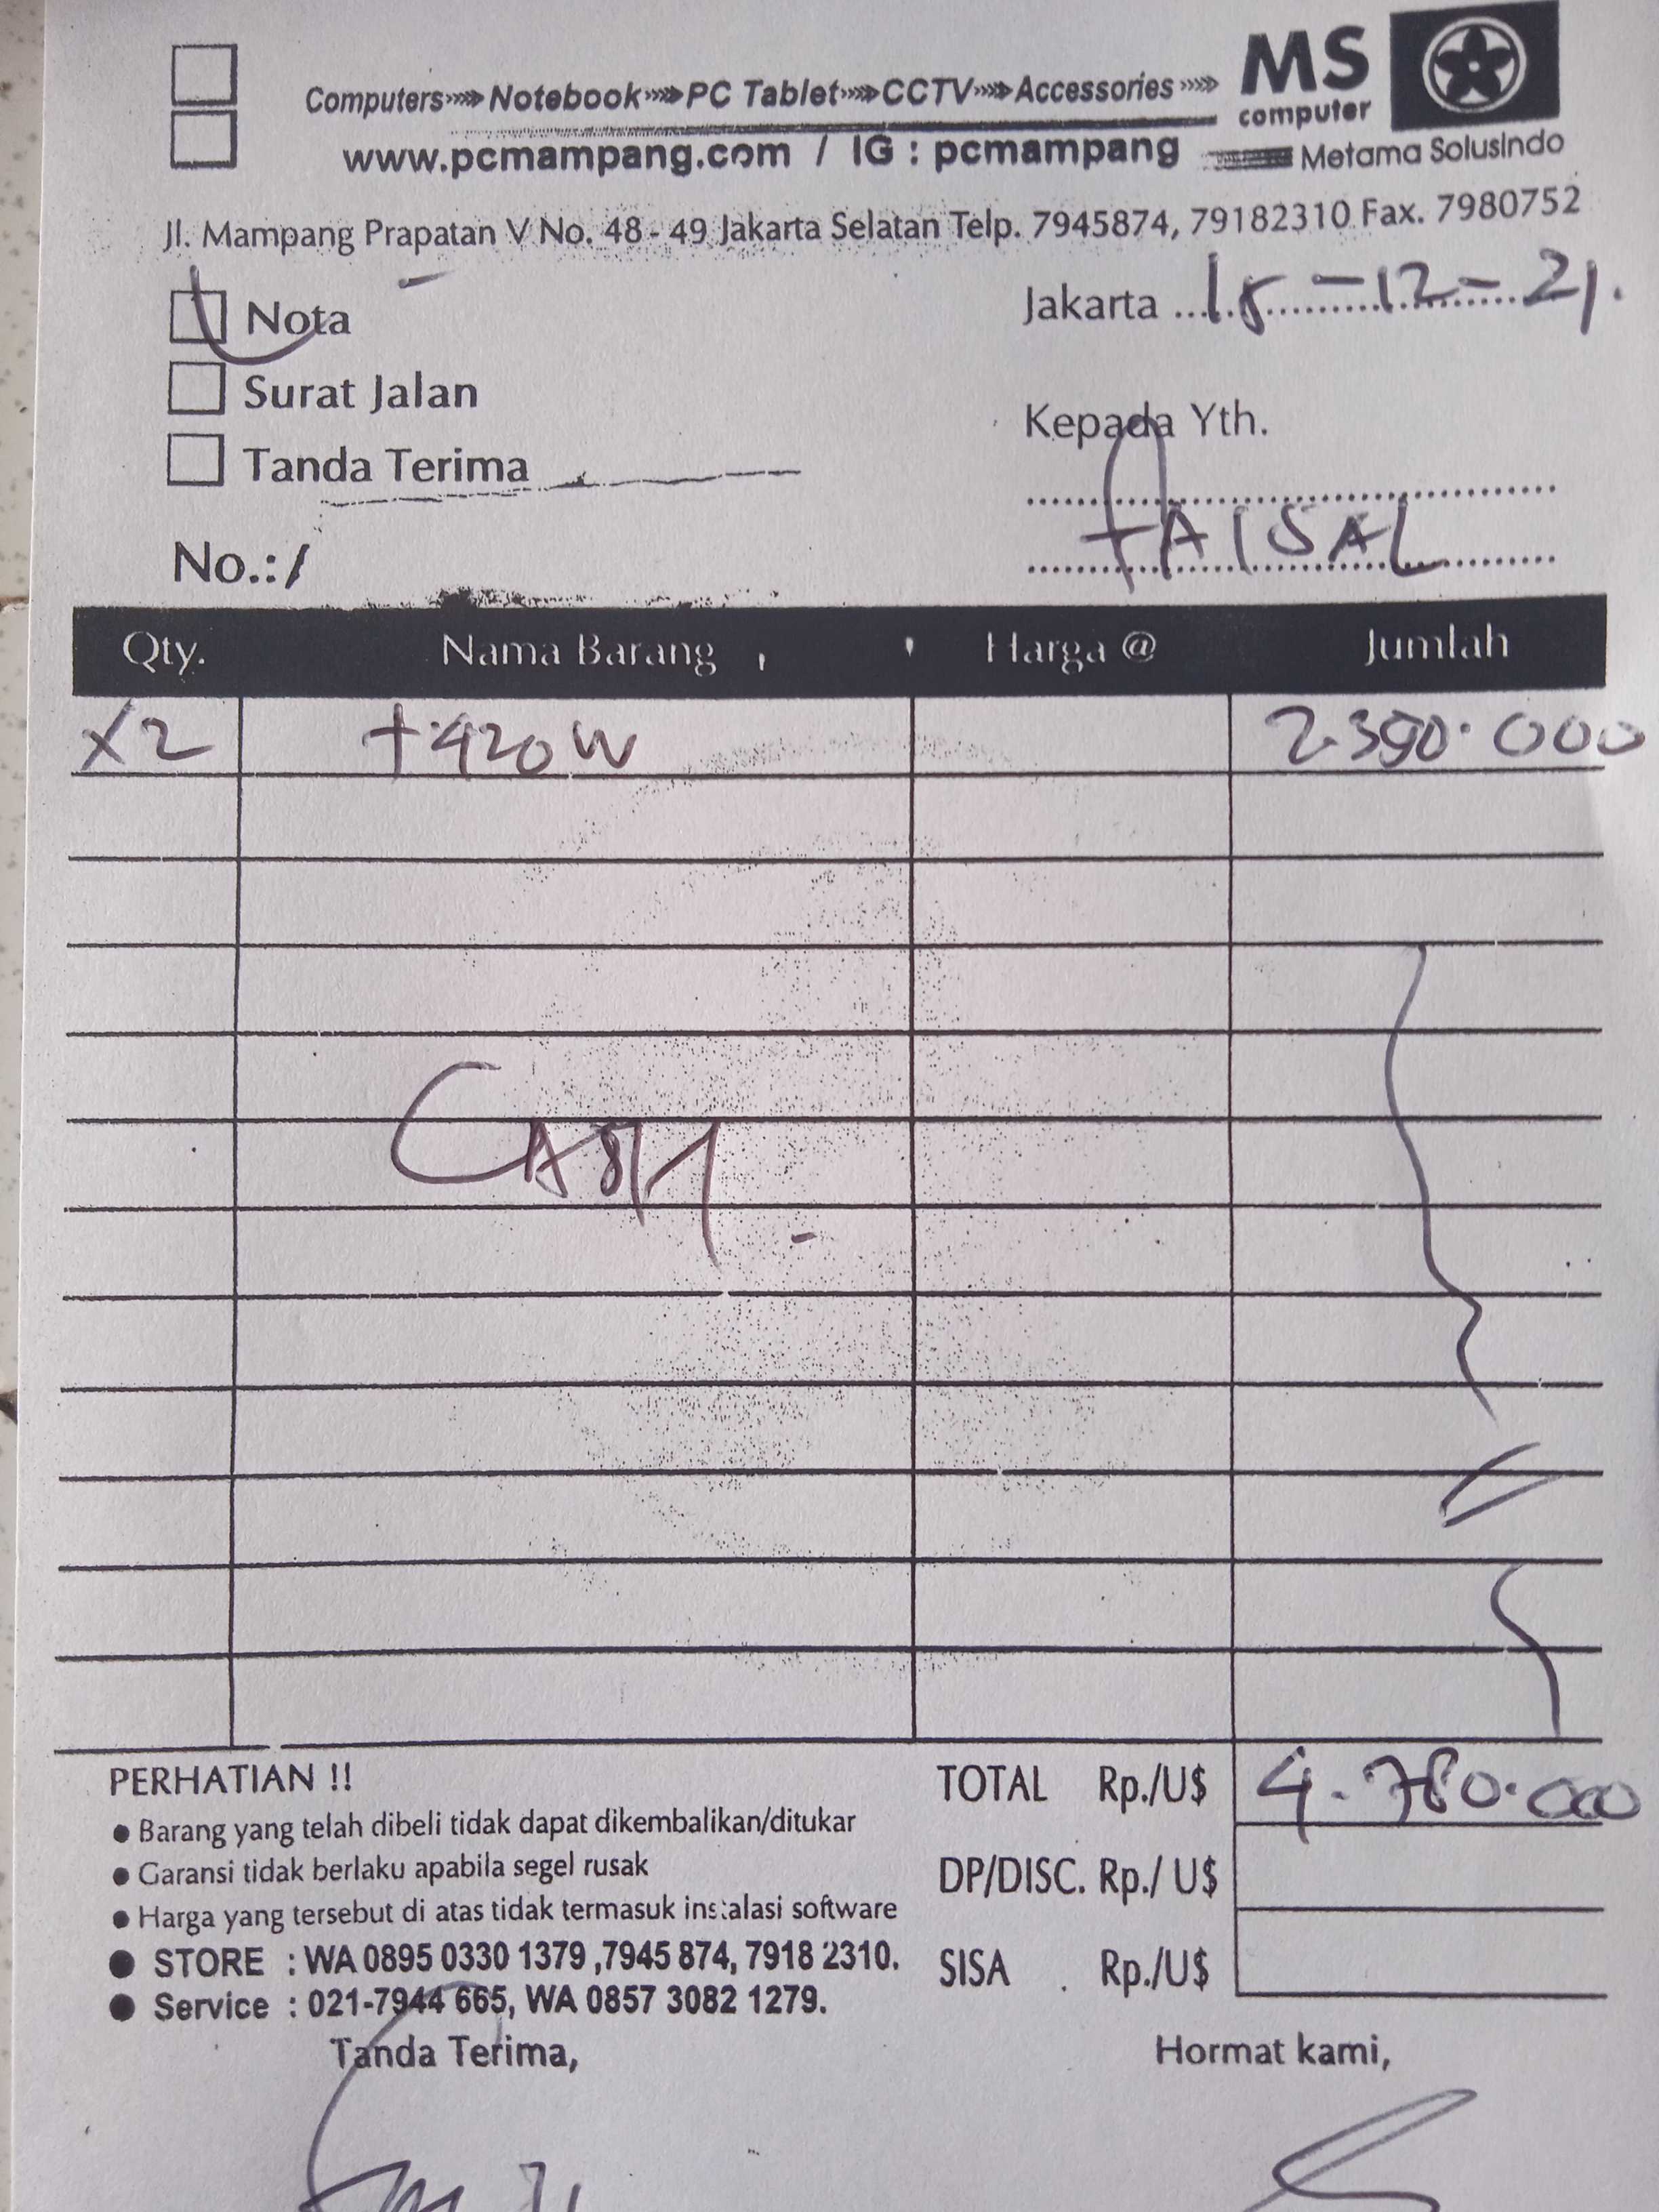 Computers Notebook PC Tablet CCTV Accessories
MS
computer
www.pcmampang.com / IG : pcmampang
Metama Solusindo
Jl. Mampang Prapatan V No. 48 - 49 Jakarta Selatan Telp. 7945874, 79182310 Fax. 7980752
Nota
Jakarta 15-12-21.
Surat Jalan
Kepada Yth.
Tanda Terima
FAISAL
No.:/
Qty. Nama Barang Harga @ Jumlah
X2 T.420W 2.390.000
CASH
PERHATIAN !!
TOTAL Rp./U$ 4.780.000
• Barang yang telah dibeli tidak dapat dikembalikan/ditukar
• Garansi tidak berlaku apabila segel rusak
DP/DISC. Rp./ U$
• Harga yang tersebut di atas tidak termasuk instalasi software
• STORE : WA 0895 0330 1379 ,7945 874, 7918 2310.
SISA Rp./U$
• Service : 021-7944 665, WA 0857 3082 1279.
Tanda Terima,
Hormat kami,